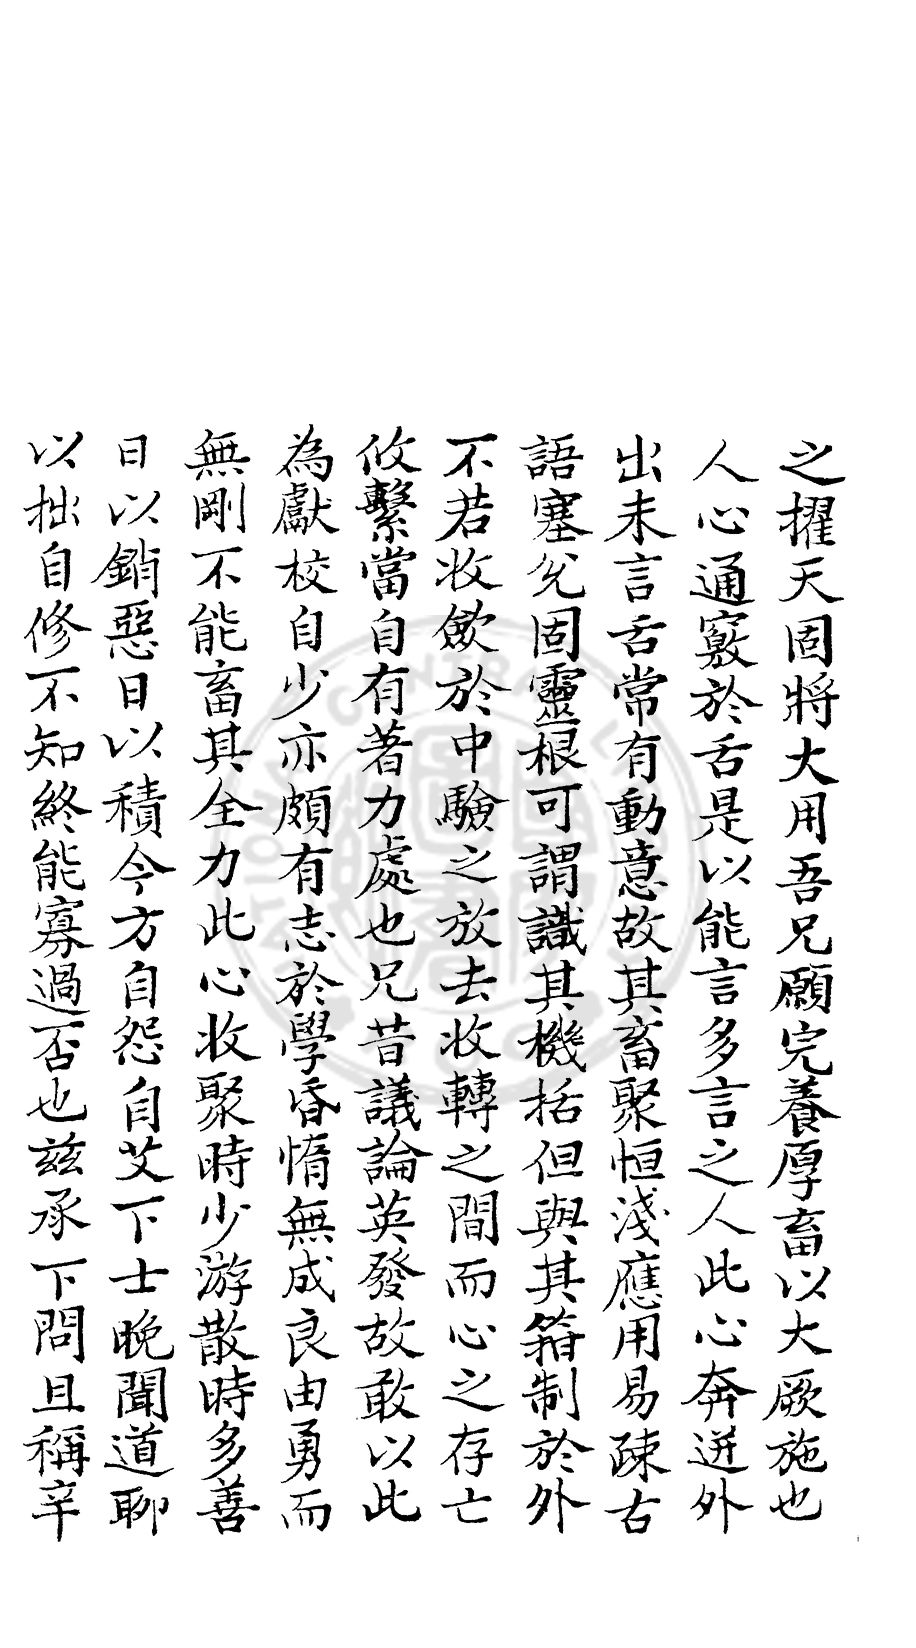 之擢天固將大用吾兄願完養厚畜以大厥施也
人心通竅於舌是以能言多言之人此心奔迸外
出未言舌常有動意故其畜聚恒淺應用易疎古
語塞兌固靈根可謂識其機括但與其箝制於外
不若收歛於中驗之放去收轉之間而心之存亡
攸繫當自有著力處也兄昔議論英發故敢以此
為獻校自少亦頗有志於學昏惰無成良由勇而
無剛不能畜其全力此心收聚時少游散時多善
日以銷惡日以積今方自怨自艾下士晚聞道聊
以拙自修不知終能寡過否也茲承下問且稱辛